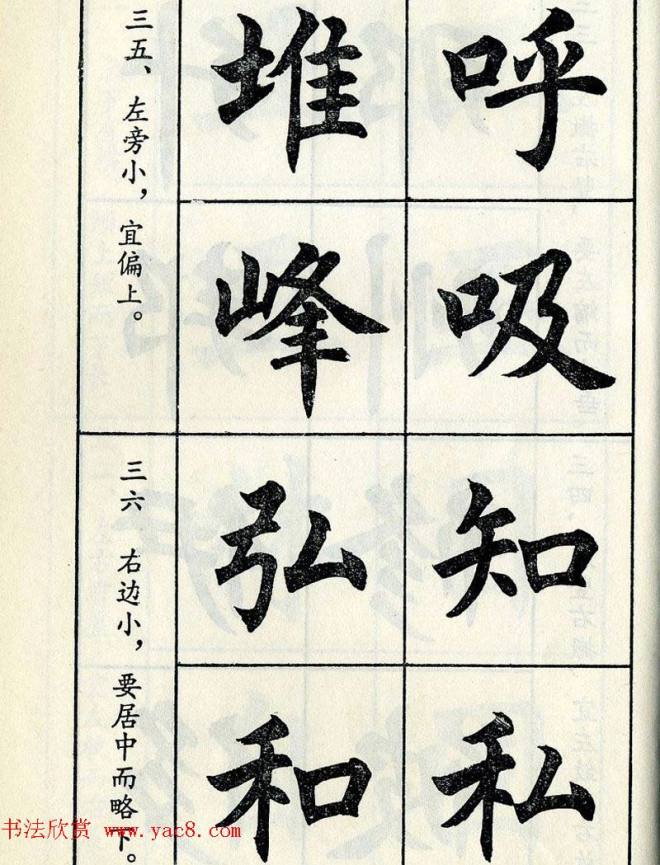 呼
吸
堆
峰
三五、左旁小，宜偏上。
知
私
弘
和
三六 右边小，要居中而略下。
书法欣赏 www.yac8.com